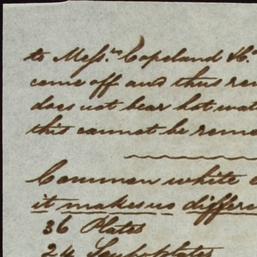 to Messrs Copeland &c.
come off and thus ren
does not bear hot wat
this cannot be remo
Common white
it makes no differe
36 Plates
24 Soup plates